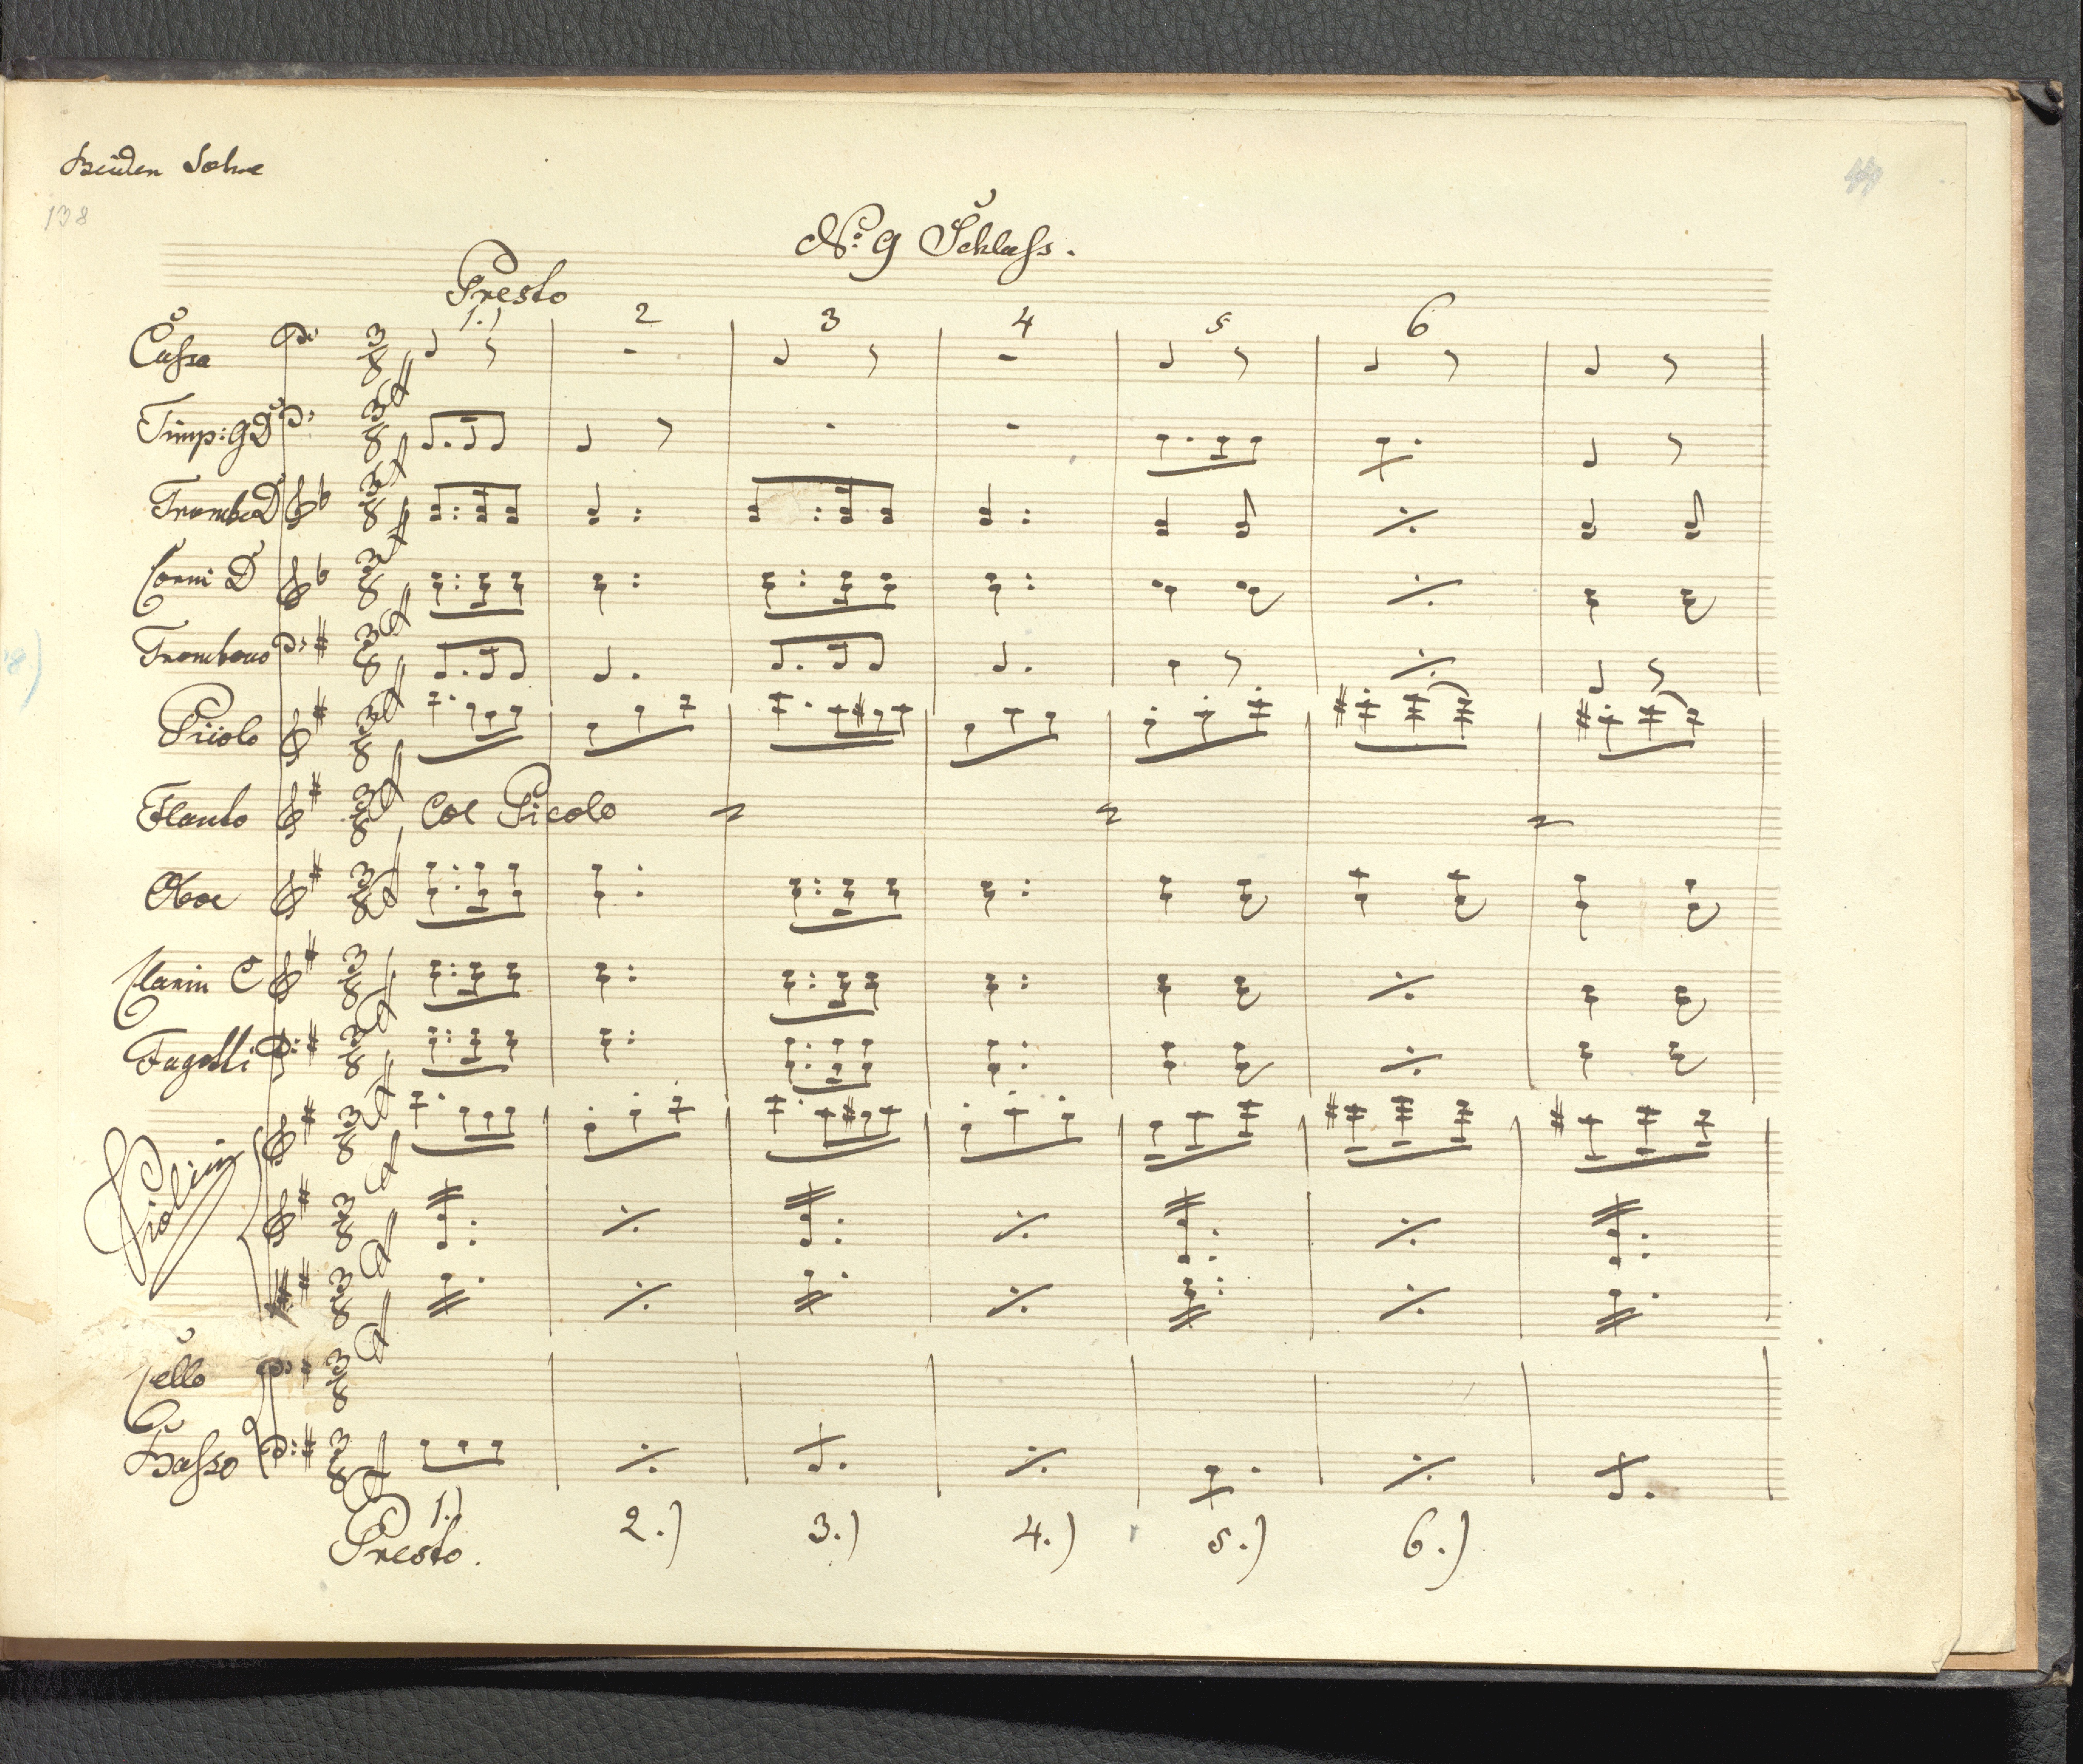 Beiden Sohne
138
No. 9 Schluss.
Presto
1.) 2 3 4 5 6
Cassa
Timp: G D
Trombe D
Corni D
Trombono
Piccolo
Flauto Col Picolo
Oboe
Clarin C
Fagotti
Violini
Cello
Basso
1.) 2.) 3.) 4.) 5.) 6.)
Presto.